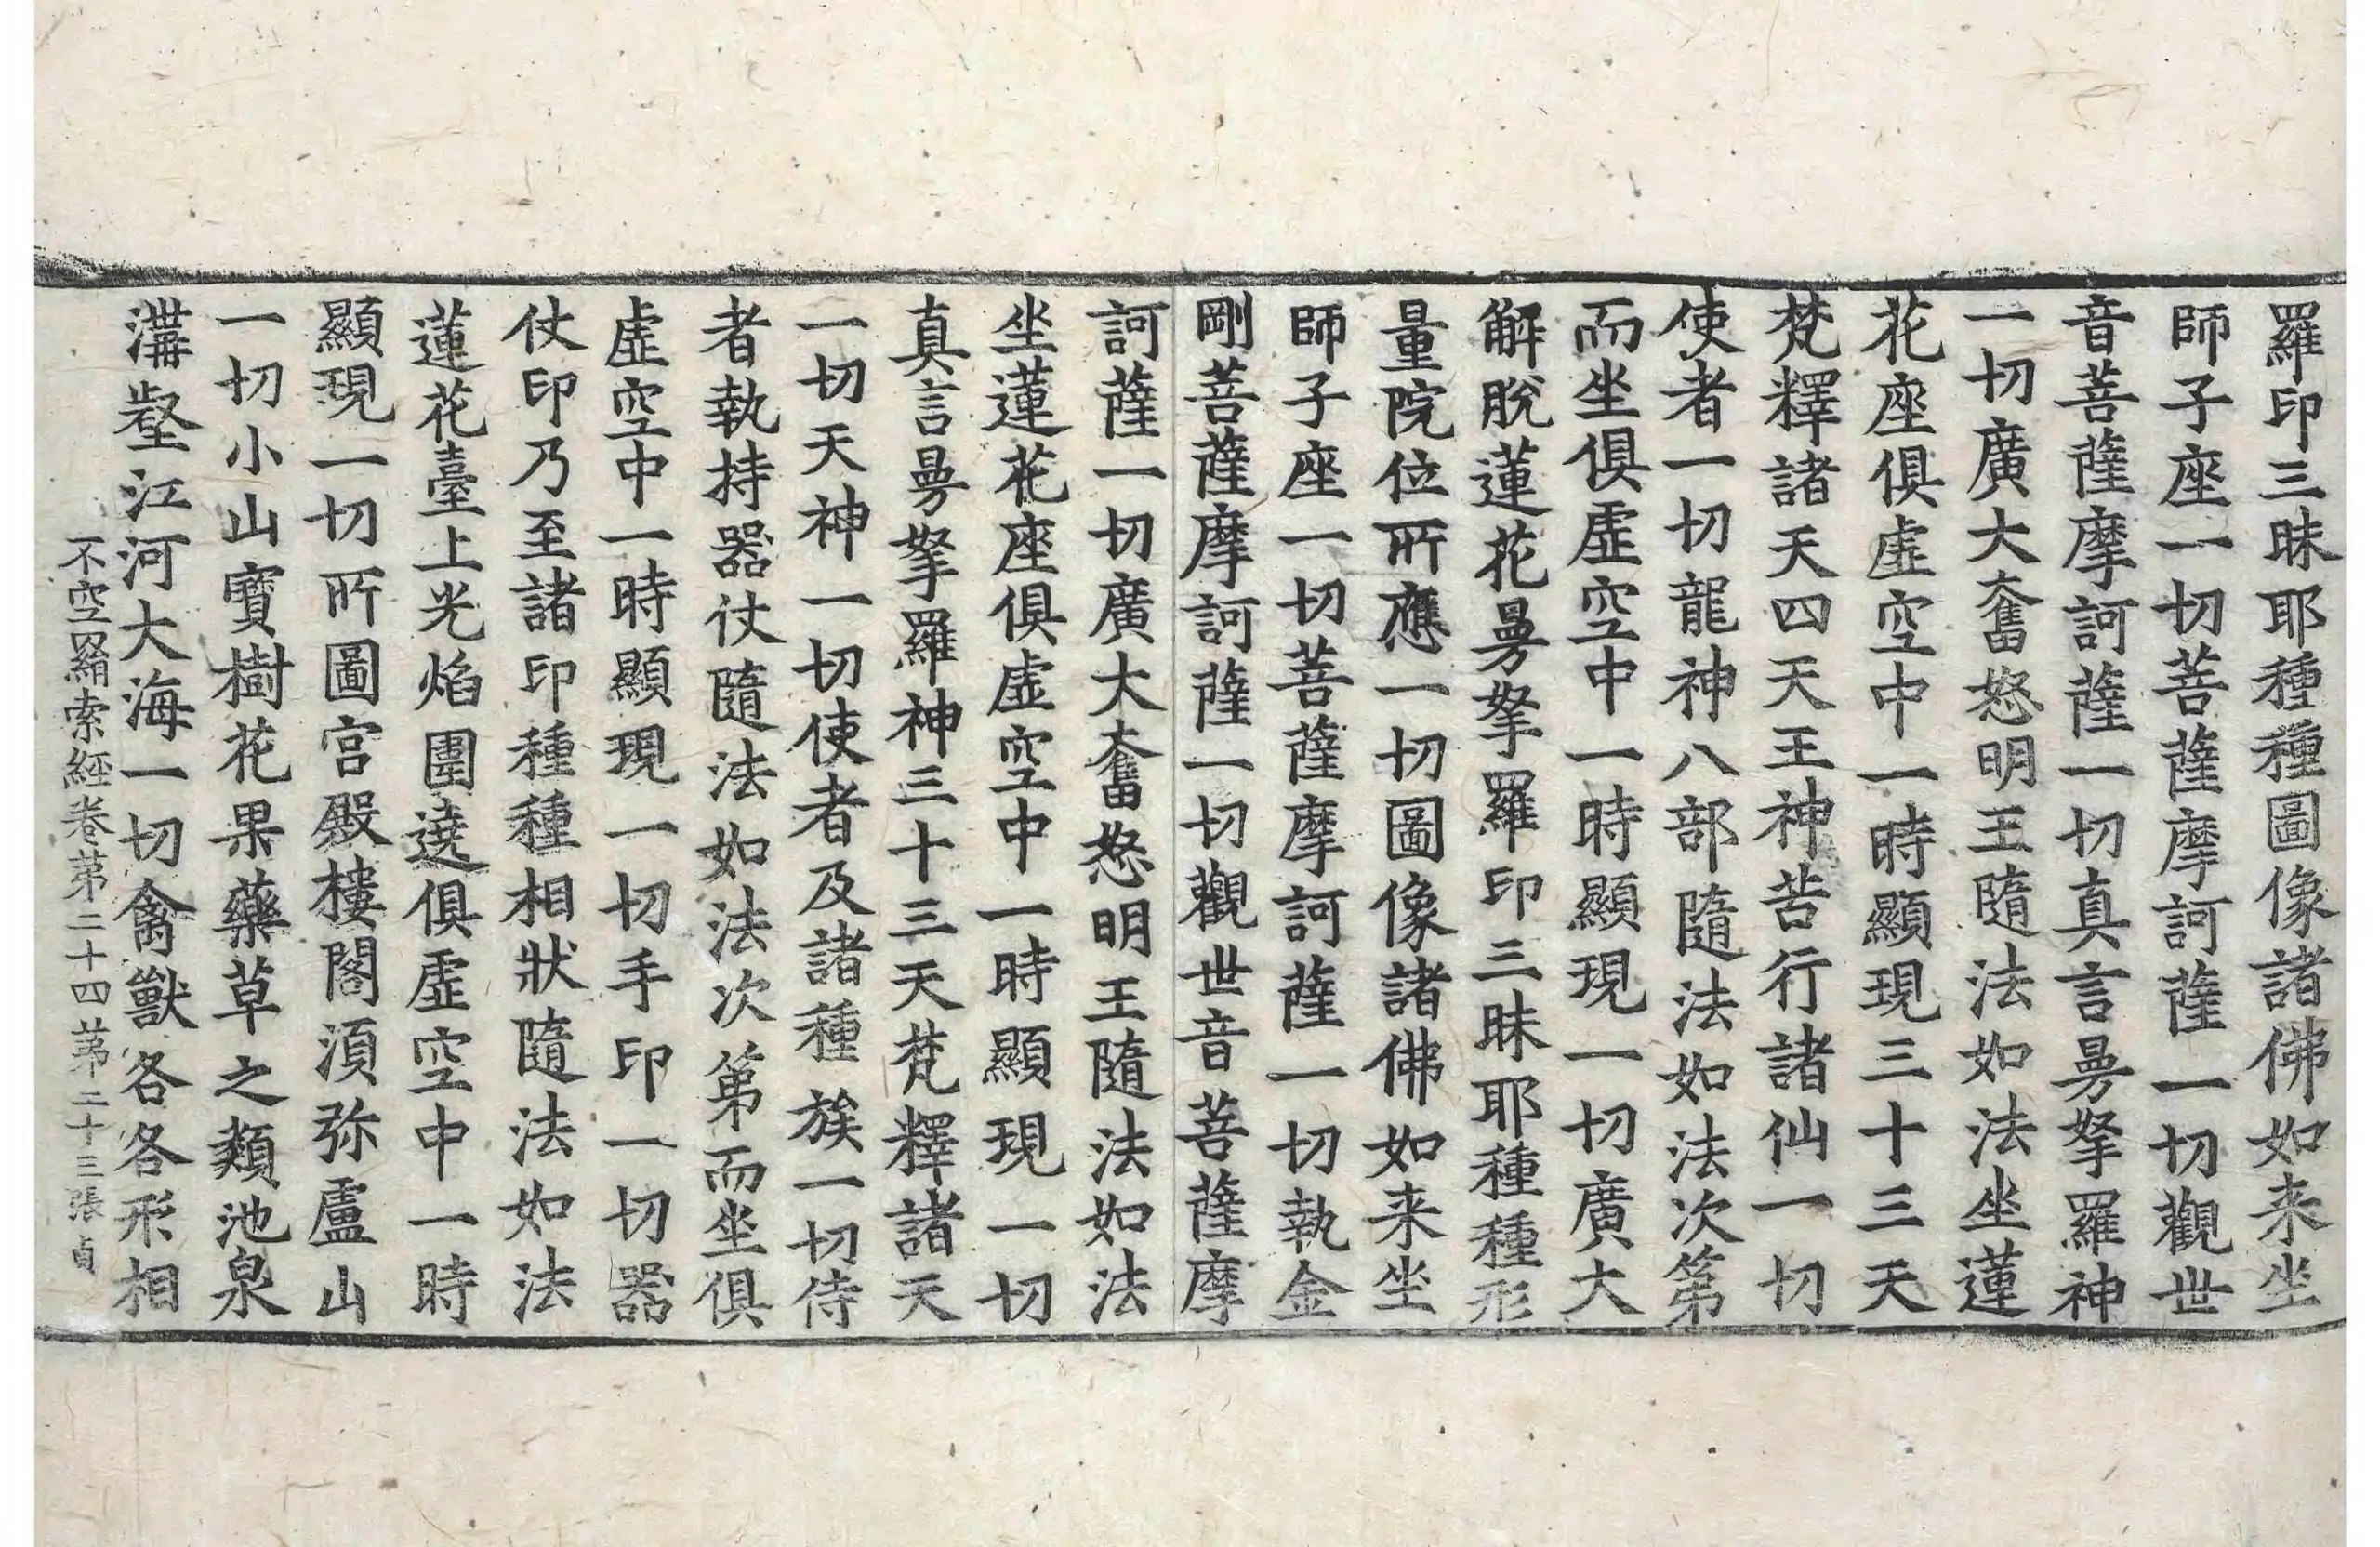 羅印三昧耶種種圖像諸佛如来坐
師子座一切菩薩摩訶薩一切觀世
音菩薩摩訶薩一切真言曼拏羅神
一切廣大奮怒明王隨法如法坐蓮
花座俱虛空中一時顯現三十三天
梵釋諸天四天王神苦行諸仙一切
使者一切龍神八部隨法如法次第
而坐俱虛空中一時顯現一切廣大
解脫蓮花曼拏羅印三昧耶種種形
量院位所應一切圖像諸佛如来坐
師子座一切菩薩摩訶薩一切執金
剛菩薩摩訶薩一切觀世音菩薩摩
訶薩一切廣大奮怒明王隨法如法
坐蓮花座俱虛空中一時顯現一切
真言曼拏羅神三十三天梵釋諸天
一切天神一切使者及諸種族一切侍
者執持器仗隨法如法次第而坐俱
虛空中一時顯現一切手印一切器
仗印乃至諸印種種相狀隨法如法
蓮花臺上光焰圍遶俱虛空中一時
顯現一切所圖宮殿樓閣湏弥盧山
一切小山寶樹花果藥草之類池泉
溝壑江河大海一切禽獸各各形相
不空羂索經卷第二十四第二十三張 貞